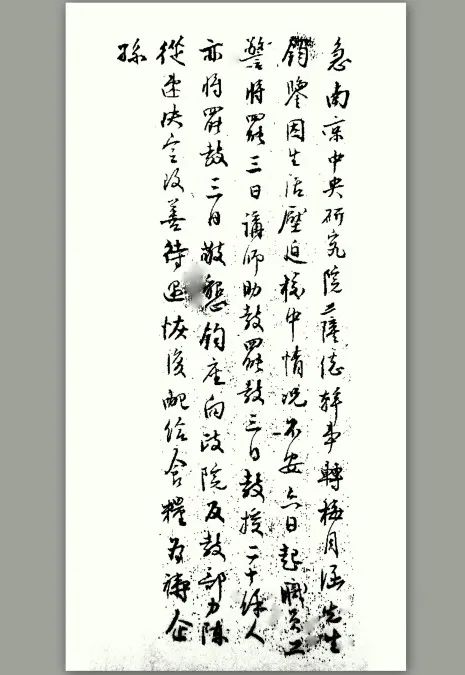 急南京中央研究院薩總幹事轉梅月涵先生
鈞鑒因生活壓迫校中情況不安六日起職員工
警將罷三日講師助教罷教三日教授二十餘人
亦將罷教三日敬懇鈞座向政院及教部力陳
從速決定改善待遇恢復配給食糧為禱企
孫